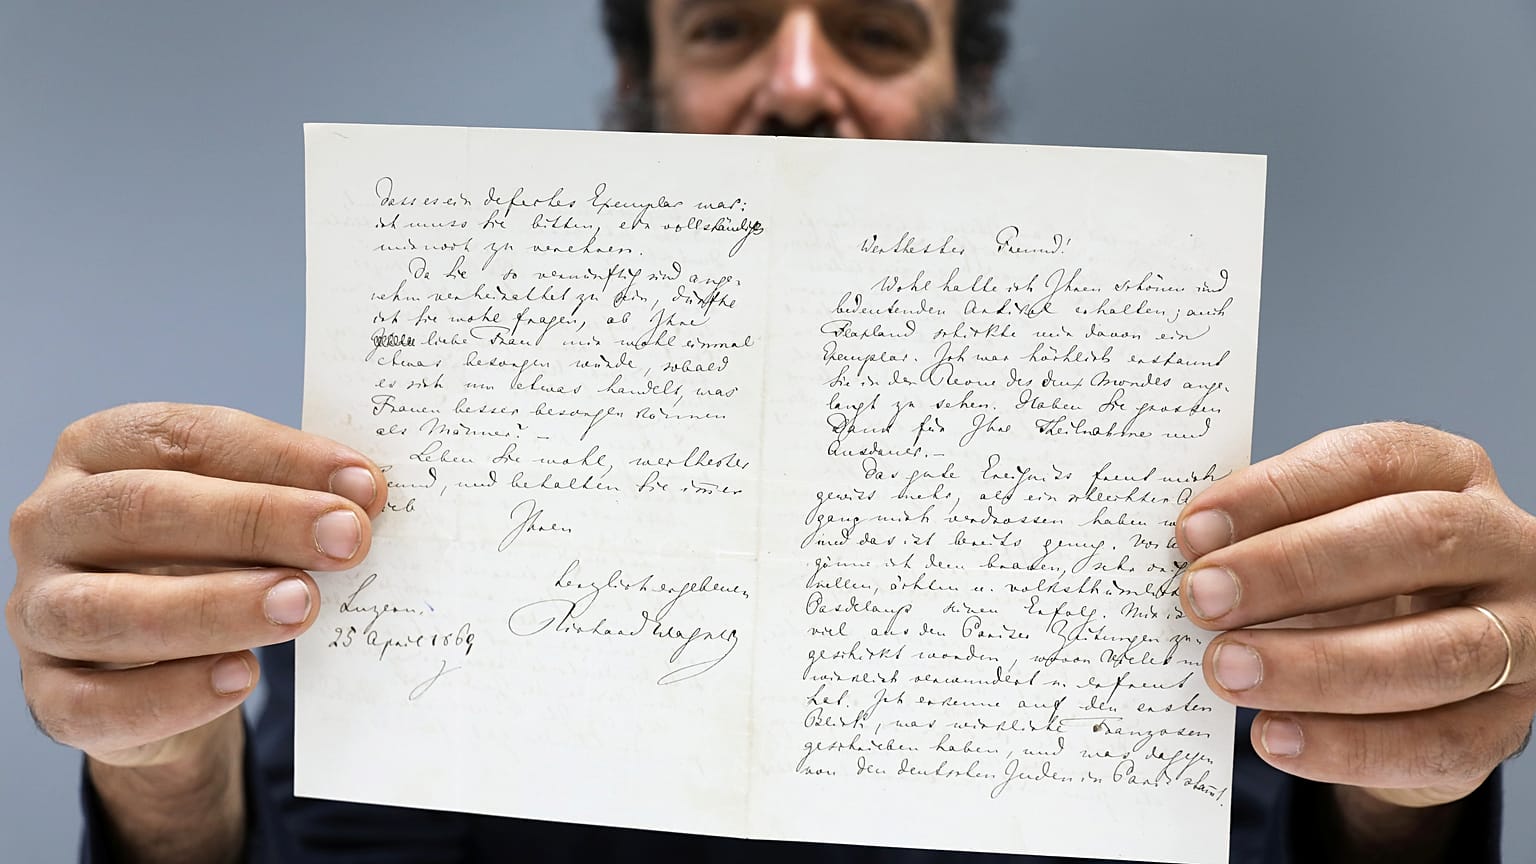 dass es ein defectes Exemplar war:
ich muss Sie bitten, ein vollständiges
mir noch zu verehren.
Da Sie so vernünftig und ange-
nehm verheirathet zu sein, dürfte
ich Sie wohl fragen, ob Ihre
liebe Frau mir wohl einmal
etwas besorgen würde, sobald
es sich um etwas handelt, was
Frauen besser besorgen können
als Männer? –
Leben Sie wohl, werthester
Freund, und behalten Sie immer
lieb
Ihren
herzlich ergebenen
Richard Wagner
Luzern.
25 April 1869
Werthester Freund!
Wohl hatte ich Ihren schönen und
bedeutenden Artikel erhalten; auch
Flaxland schickte mir davon ein
Exemplar. Ich war höchlich erstaunt
Sie in der Revue des deux Mondes ange-
langt zu sehen. Haben Sie grossen
Dank für Ihre Theilnahme und
Ausdauer. –
Das gute Ereigniss freut mich
gewiss mehr, als ein schlechter
ganz mich verdrossen haben
und das ist bereits genug.
gönne ich dem braven, sehr
vollen, ächten u.
Pasdeloup seinen Erfolg. Mir
viel aus den Pariser Zeitungen zu-
geschickt worden, wovon Vieles
wirklich verwundert u. erfreut
hat. Ich erkenne auf den ersten
Blick, was wirkliche Franzosen
geschrieben haben, und was dagegen
von den deutschen Juden in Paris stammt.